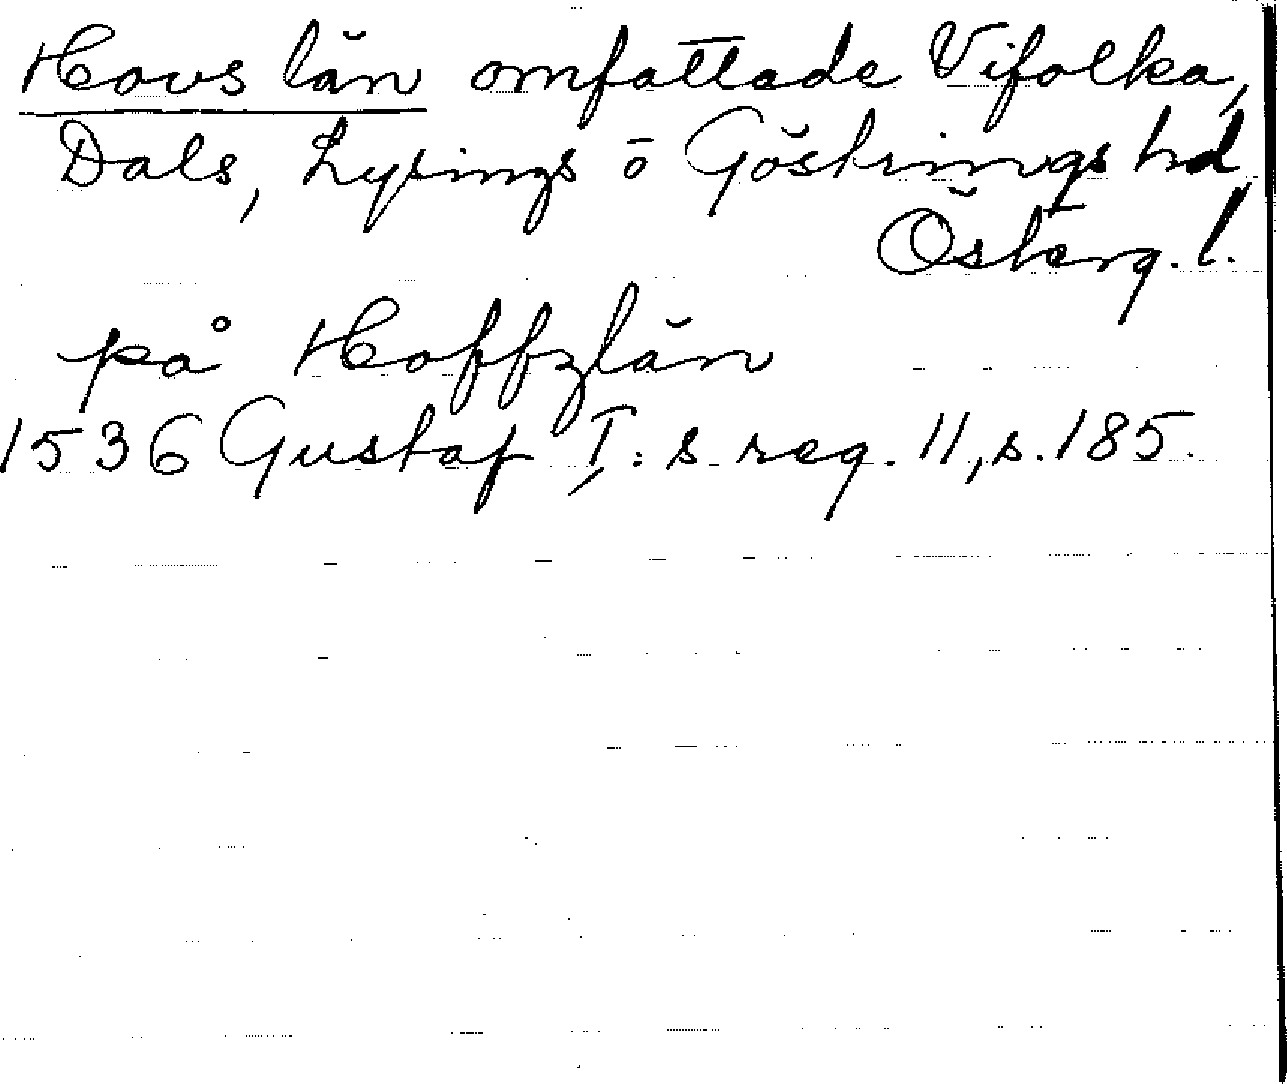 Hovs län omfattade Vifolka,
Dals, Lysings o Göstrings hd
Österg. l.
på Hoffzlän
1536 Gustaf I:s reg. 11, s. 185.